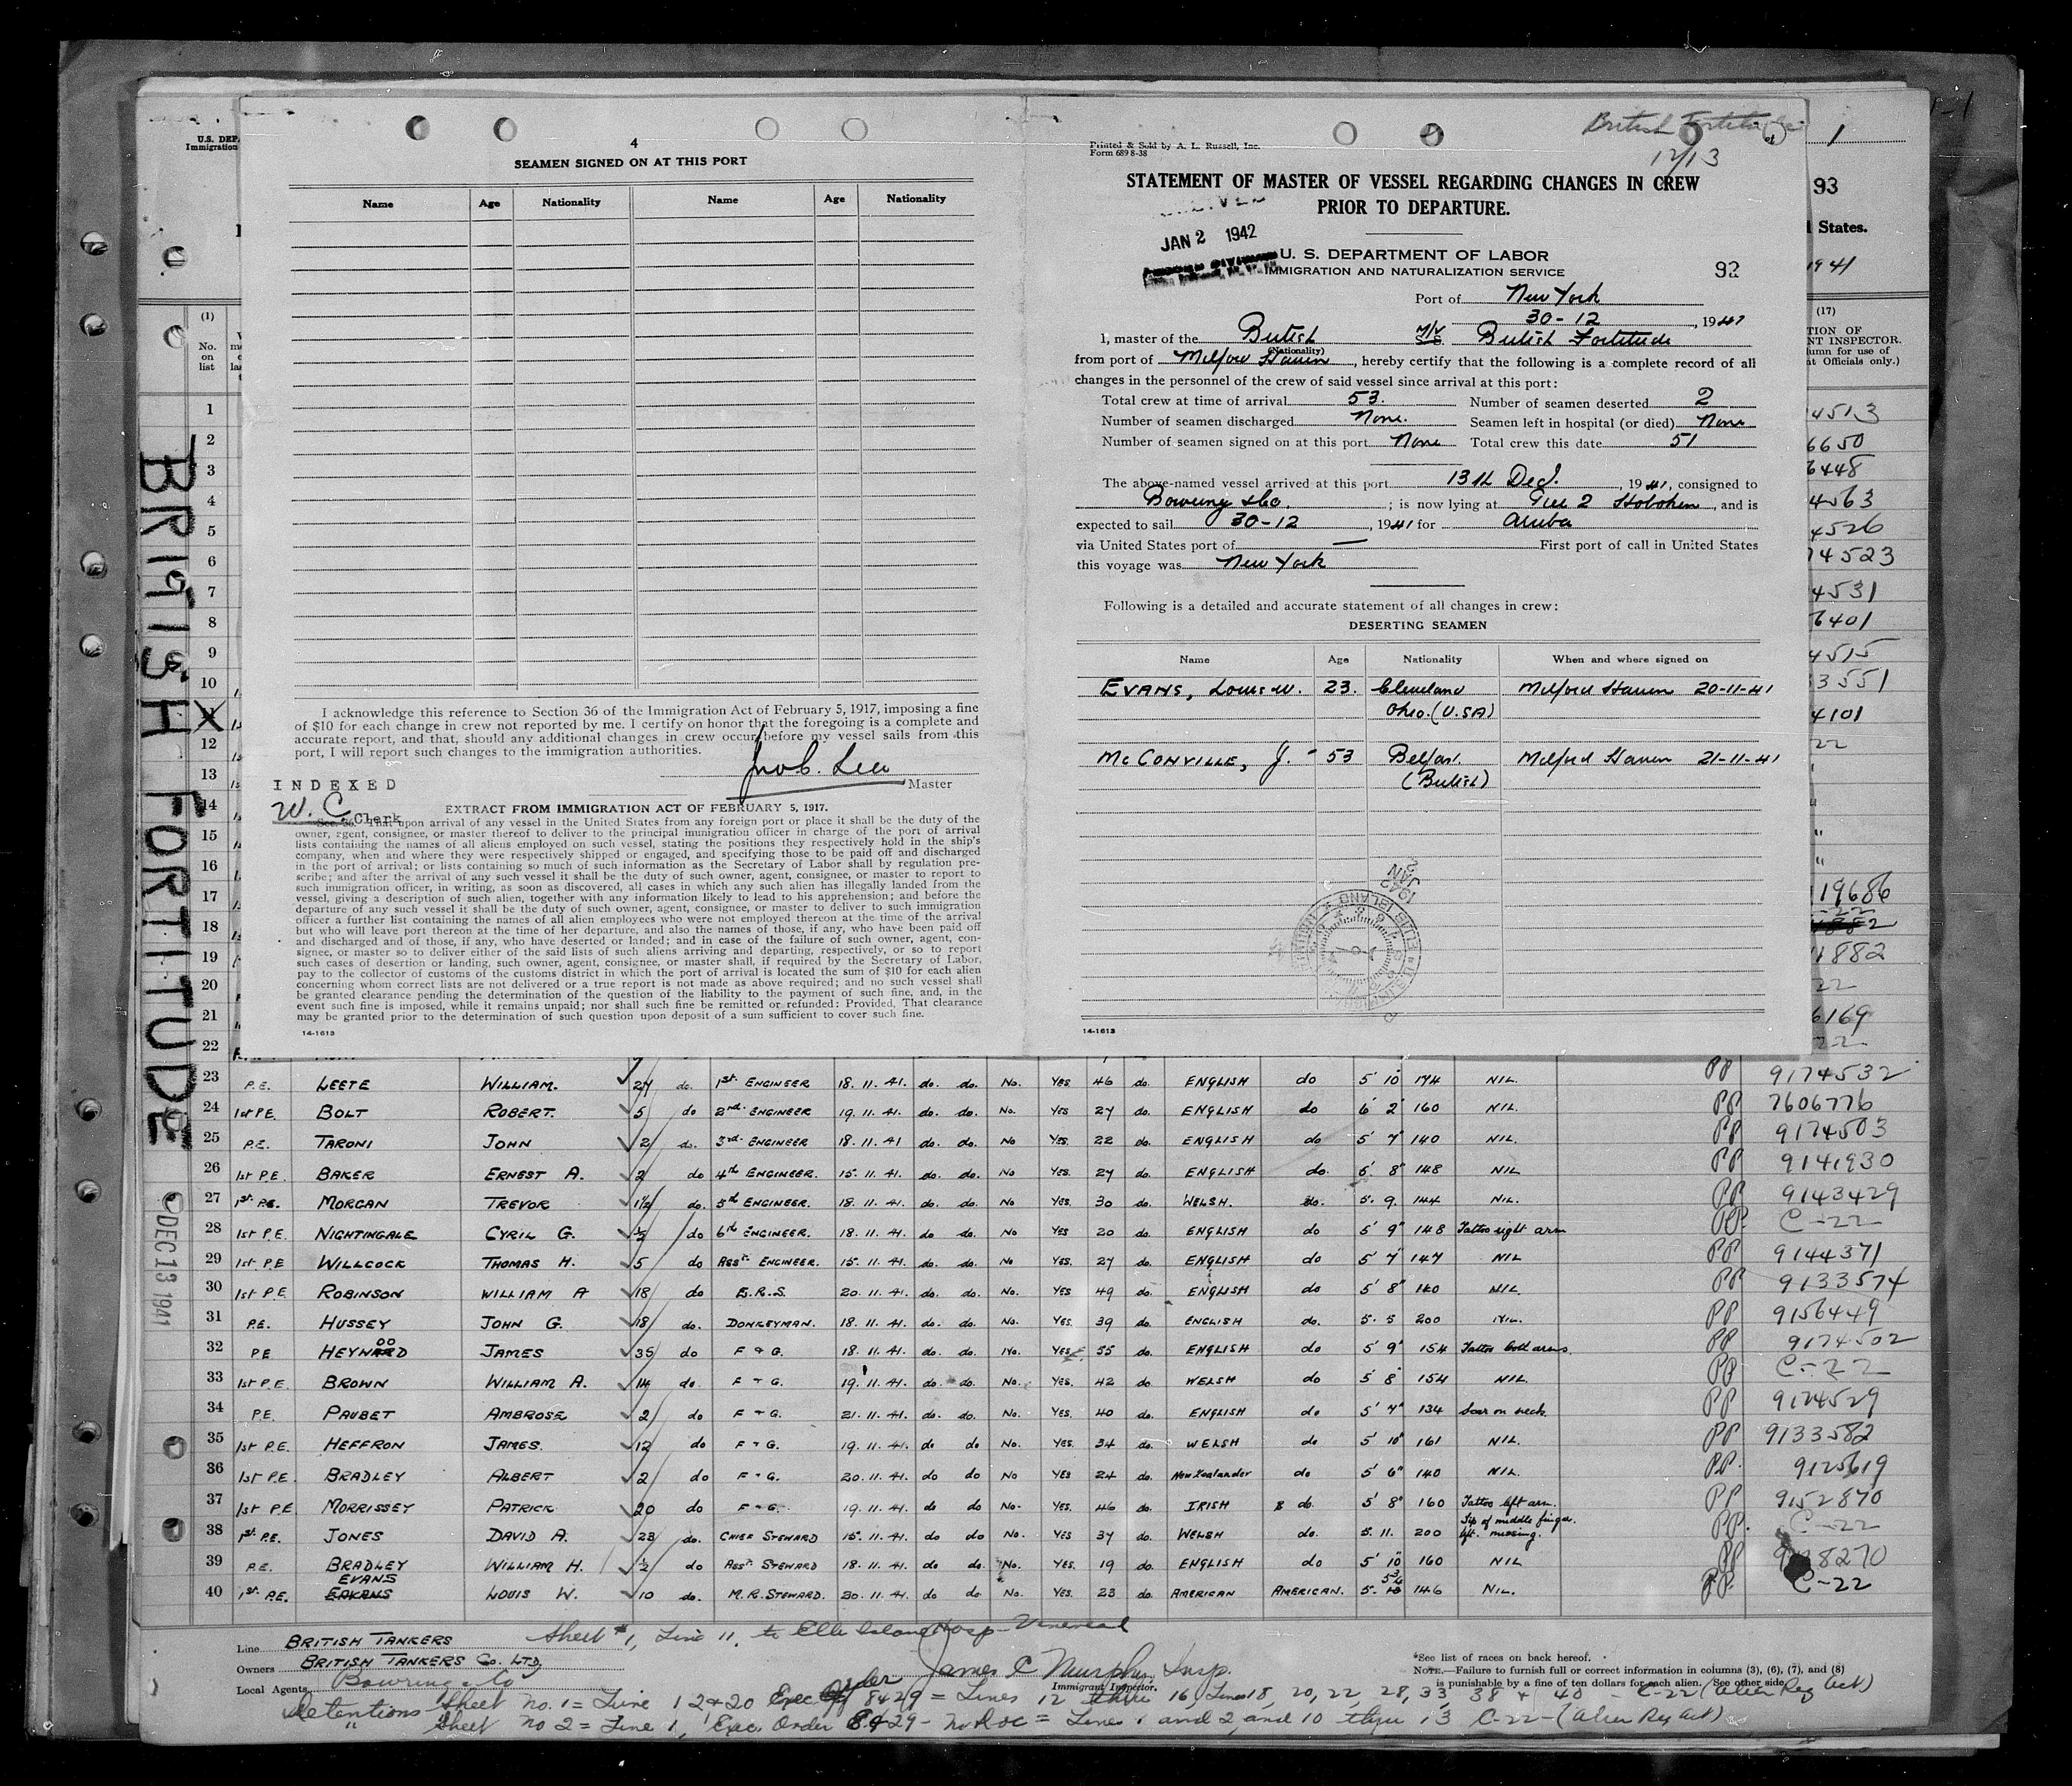 British Fortitude
12/13
1
93
States.
1941
U.S. DEP
Immigration
4
SEAMEN SIGNED ON AT THIS PORT
Name Age Nationality Name Age Nationality
I acknowledge this reference to Section 36 of the Immigration Act of February 5, 1917, imposing a fine
of $10 for each change in crew not reported by me. I certify on honor that the foregoing is a complete and
accurate report, and that, should any additional changes in crew occur before my vessel sails from this
port, I will report such changes to the immigration authorities.
Jno C. Lee
Master
INDEXED
W. C. Clerk
EXTRACT FROM IMMIGRATION ACT OF FEBRUARY 5, 1917.
Sec. 36. That upon arrival of any vessel in the United States from any foreign port or place it shall be the duty of the
owner, agent, consignee, or master thereof to deliver to the principal immigration officer in charge of the port of arrival
lists containing the names of all aliens employed on such vessel, stating the positions they respectively hold in the ship's
company, when and where they were respectively shipped or engaged, and specifying those to be paid off and discharged
in the port of arrival; or lists containing so much of such information as the Secretary of Labor shall by regulation pre-
scribe; and after the arrival of any such vessel it shall be the duty of such owner, agent, consignee, or master to report to
such immigration officer, in writing, as soon as discovered, all cases in which any such alien has illegally landed from the
vessel, giving a description of such alien, together with any information likely to lead to his apprehension; and before the
departure of any such vessel it shall be the duty of such owner, agent, consignee, or master to deliver to such immigration
officer a further list containing the names of all alien employees who were not employed thereon at the time of the arrival
but who will leave port thereon at the time of her departure, and also the names of those, if any, who have been paid off
and discharged and of those, if any, who have deserted or landed; and in case of the failure of such owner, agent, con-
signee, or master so to deliver either of the said lists of such aliens arriving and departing, respectively, or so to report
such cases of desertion or landing, such owner, agent, consignee, or master shall, if required by the Secretary of Labor,
pay to the collector of customs of the customs district in which the port of arrival is located the sum of $10 for each alien
concerning whom correct lists are not delivered or a true report is not made as above required; and no such vessel shall
be granted clearance pending the determination of the question of the liability to the payment of such fine, and, in the
event such fine is imposed, while it remains unpaid; nor shall such fine be remitted or refunded: Provided, That clearance
may be granted prior to the determination of such question upon deposit of a sum sufficient to cover such fine.
14-1613
Printed & Sold by A. L. Russell, Inc.
Form 689 8-38
STATEMENT OF MASTER OF VESSEL REGARDING CHANGES IN CREW
PRIOR TO DEPARTURE.
JAN 2 1942
U. S. DEPARTMENT OF LABOR
IMMIGRATION AND NATURALIZATION SERVICE
92
Port of New York
30-12, 1941
I, master of the British M/V British Fortitude
(Nationality)
from port of Milford Haven, hereby certify that the following is a complete record of all
changes in the personnel of the crew of said vessel since arrival at this port:
Total crew at time of arrival 53. Number of seamen deserted 2
Number of seamen discharged None. Seamen left in hospital (or died) None
Number of seamen signed on at this port None Total crew this date 51
The above-named vessel arrived at this port 13th Dec., 1941, consigned to
Bowring & Co. ; is now lying at Pier 2 Hoboken, and is
expected to sail 30-12, 1941 for Aruba
via United States port of — First port of call in United States
this voyage was New York
Following is a detailed and accurate statement of all changes in crew:
DESERTING SEAMEN
Name Age Nationality When and where signed on
EVANS, Louis W. 23. Cleveland Milford Haven 20-11-41
Ohio. (U.S.A)
McCONVILLE, J. - 53 Belfast. Milford Haven 21-11-41
(British)
JAN 2 1942
ELLIS ISLAND
14-1613
(1)
No. on list
1
2
3
4
5
6
7
8
9
10
12
13
14
15
16
17
18
19
20
21
22
(17)
TION OF
NT INSPECTOR.
lumn for use of
nt Officials only.)
4513
6650
6448
4563
4526
74523
4531
6401
4515
3551
4101
22
"
"
119686
1882
22
6169
22
BRITISH FORTITUDE
DEC 13 1941
23 P.E. LEETE WILLIAM. 24 do. 1st ENGINEER 18. 11. 41. do. do. No. YES 46 do. ENGLISH do 5' 10" 174 NIL. PP 9174532
24 1st P.E. BOLT ROBERT. 5 do 2nd ENGINEER 19. 11. 41. do. do. No. YES 27 do. ENGLISH do 6' 2" 160 NIL. PP 7606776
25 P.E. TARONI JOHN 2 do. 3rd ENGINEER 18. 11. 41 do. do. No YES. 22 do. ENGLISH do 5' 7" 140 NIL. PP 9174503
26 1st P.E. BAKER ERNEST A. 2 do 4th ENGINEER. 15. 11. 41. do. do. No YES. 27 do. ENGLISH do. 5' 8" 148 NIL PP 9141930
27 1st. P.E. MORGAN TREVOR 1½ do. 5th ENGINEER. 18. 11. 41. do. do. No YES. 30 do. WELSH. do. 5. 9. 144 NIL. PP 9143429
28 1st P.E. NIGHTINGALE CYRIL G. ½ do 6th ENGINEER. 18. 11. 41. do do. No YES 20 do. ENGLISH do 5' 9" 148 Tattoo right arm PP. C-22
29 1st P.E WILLCOCK THOMAS H. 5 do Asst. ENGINEER. 15. 11. 41. do. do. No YES. 27 do. ENGLISH do 5' 7" 147 NIL PP 9144371
30 1st P.E. ROBINSON WILLIAM A 18 do E.R.S. 20. 11. 41. do. do. No. YES 49 do. ENGLISH do 5' 8" 140 NIL. PP 9133574
31 P.E. HUSSEY JOHN G. 18 do. DONKEYMAN. 18. 11. 41. do. do. No. YES. 39 do. ENGLISH do. 5. 5 200 NIL. PP 9156449
32 P.E HEYWOOD JAMES 35 do F & G. 18. 11. 41. do. do. No. YES 55 do. ENGLISH do 5' 9" 154 Tattoo both arms. PP 9174502
33 1st P.E. BROWN WILLIAM A. 14 do. F & G. 19. 11. 41. do. do. No. YES. 42 do. WELSH do 5' 8 154 NIL. PP C-22
34 P.E. PAUBET AMBROSE 2 do F & G. 21. 11. 41. do. do. No. YES. 40 do. ENGLISH do 5' 7" 134 Scar on neck. PP 9174529
35 1st P.E. HEFFRON JAMES. 12 do F & G. 19. 11. 41. do do No. YES. 34 do. WELSH do 5' 10" 161 NIL. PP 9133582
36 1st P.E. BRADLEY ALBERT 2 do F & G. 20. 11. 41. do do No YES 24 do. New Zealander do 5' 6" 140 NIL. PP. 9125619
37 1st P.E MORRISSEY PATRICK 20 do F & G. 19. 11. 41. do do No. YES. 46 do. IRISH do. 5' 8" 160 Tattoo left arm. PP 9152870
38 1st. P.E. JONES DAVID A. 28 do. CHIEF STEWARD 15. 11. 41. do do No. YES 37 do. WELSH do. 5. 11. 200 Tip of middle finger left. missing. PP. C-22
39 P.E. BRADLEY WILLIAM H. ½ do Asst STEWARD 18. 11. 41. do do. No. YES. 19 do. ENGLISH do 5' 10" 160 NIL PP 8270
40 1st. P.E. EVANS LOUIS W. 10 do. M. R. STEWARD. 20. 11. 41. do do. No. YES. 23 do. AMERICAN AMERICAN. 5. 146 NIL. P.P. C-22
Line BRITISH TANKERS Sheet #1, Line 11, to Ellis Island Hosp - Venereal
Owners BRITISH TANKERS Co. LTD,
Local Agents Bowring & Co
James C Murphy Insp.
Immigrant Inspector.
*See list of races on back hereof.
NOTE.—Failure to furnish full or correct information in columns (3), (6), (7), and (8)
is punishable by a fine of ten dollars for each alien. See other side.
Detentions Sheet No. 1 = Line 1 2 & 20 Exec Order 8429 = Lines 12 thru 16, Lines 18, 20, 22, 28, 33, 38 & 40 - C-22 (Alien Reg Act)
" Sheet No 2 = Line 1, Exec. Order 8429 - No Doc = Lines 1 and 2, and 10 thru 13 C-22 - (Alien Reg Act)